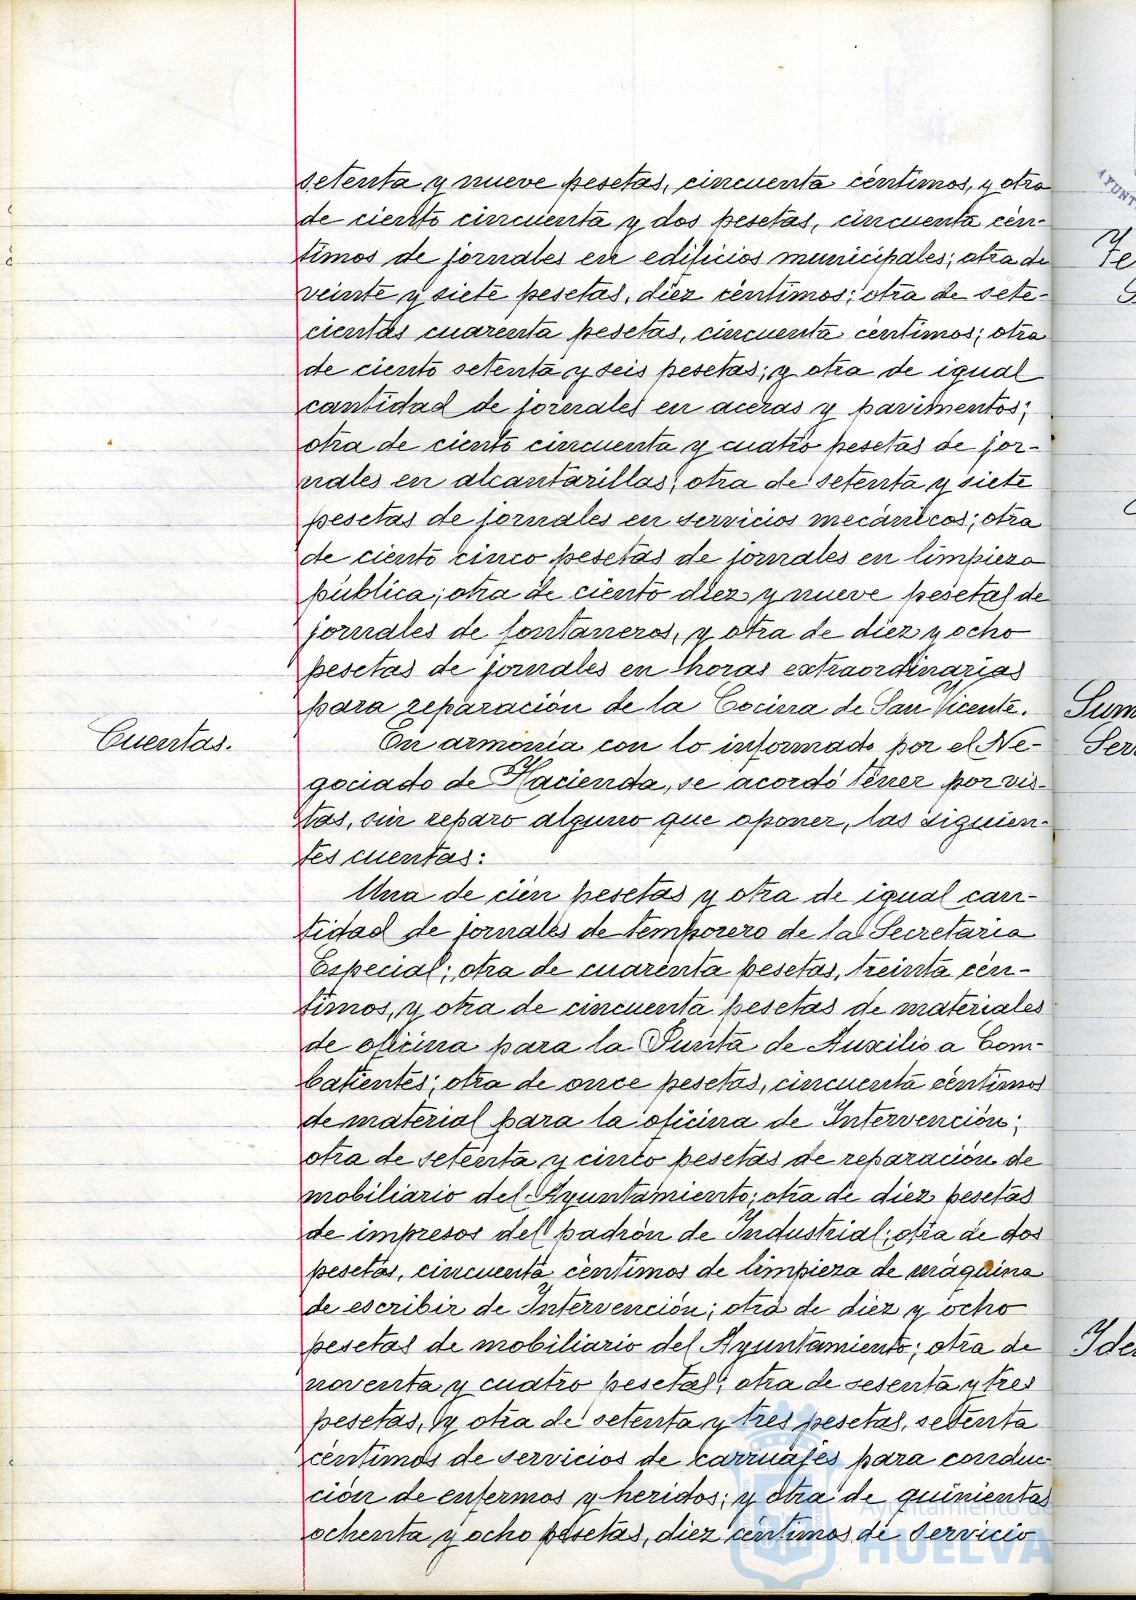 setenta y nueve pesetas, cincuenta céntimos, y otra
de ciento cincuenta y dos pesetas, cincuenta cén-
timos de jornales en edificios municipales; otra de
veinte y siete pesetas, diez céntimos; otra de sete-
cientas cuarenta pesetas, cincuenta céntimos; otra
de ciento setenta y seis pesetas; y otra de igual
cantidad de jornales en aceras y pavimentos;
otra de ciento cincuenta y cuatro pesetas de jor-
nales en alcantarillas; otra de setenta y siete
pesetas de jornales en servicios mecánicos; otra
de ciento cinco pesetas de jornales en limpieza
pública; otra de ciento diez y nueve pesetas de
jornales de fontaneros, y otra de diez y ocho
pesetas de jornales en horas extraordinarias
para reparación de la Cocina de San Vicente.
Cuentas.
En armonía con lo informado por el Ne-
gociado de Hacienda, se acordó tener por vis-
tas, sin reparo alguno que oponer, las siguien-
tes cuentas:
Una de cien pesetas y otra de igual can-
tidad de jornales de temporero de la Secretaría
Especial; otra de cuarenta pesetas, treinta cén-
timos, y otra de cincuenta pesetas de materiales
de oficina para la Junta de Auxilio a Com-
batientes; otra de once pesetas, cincuenta céntimos
de material para la oficina de Intervención;
otra de setenta y cinco pesetas de reparación de
mobiliario del Ayuntamiento; otra de diez pesetas
de impresos del padrón de Industrial; otra de dos
pesetas, cincuenta céntimos de limpieza de máquina
de escribir de Intervención; otra de diez y ocho
pesetas de mobiliario del Ayuntamiento; otra de
noventa y cuatro pesetas; otra de sesenta y tres
pesetas, y otra de setenta y tres pesetas, setenta
céntimos de servicios de carruajes para conduc-
ción de enfermos y heridos; y otra de quinientas
ochenta y ocho pesetas, diez céntimos de servicio
Sum
Ser
Ide
Ayuntamiento de
HUELVA